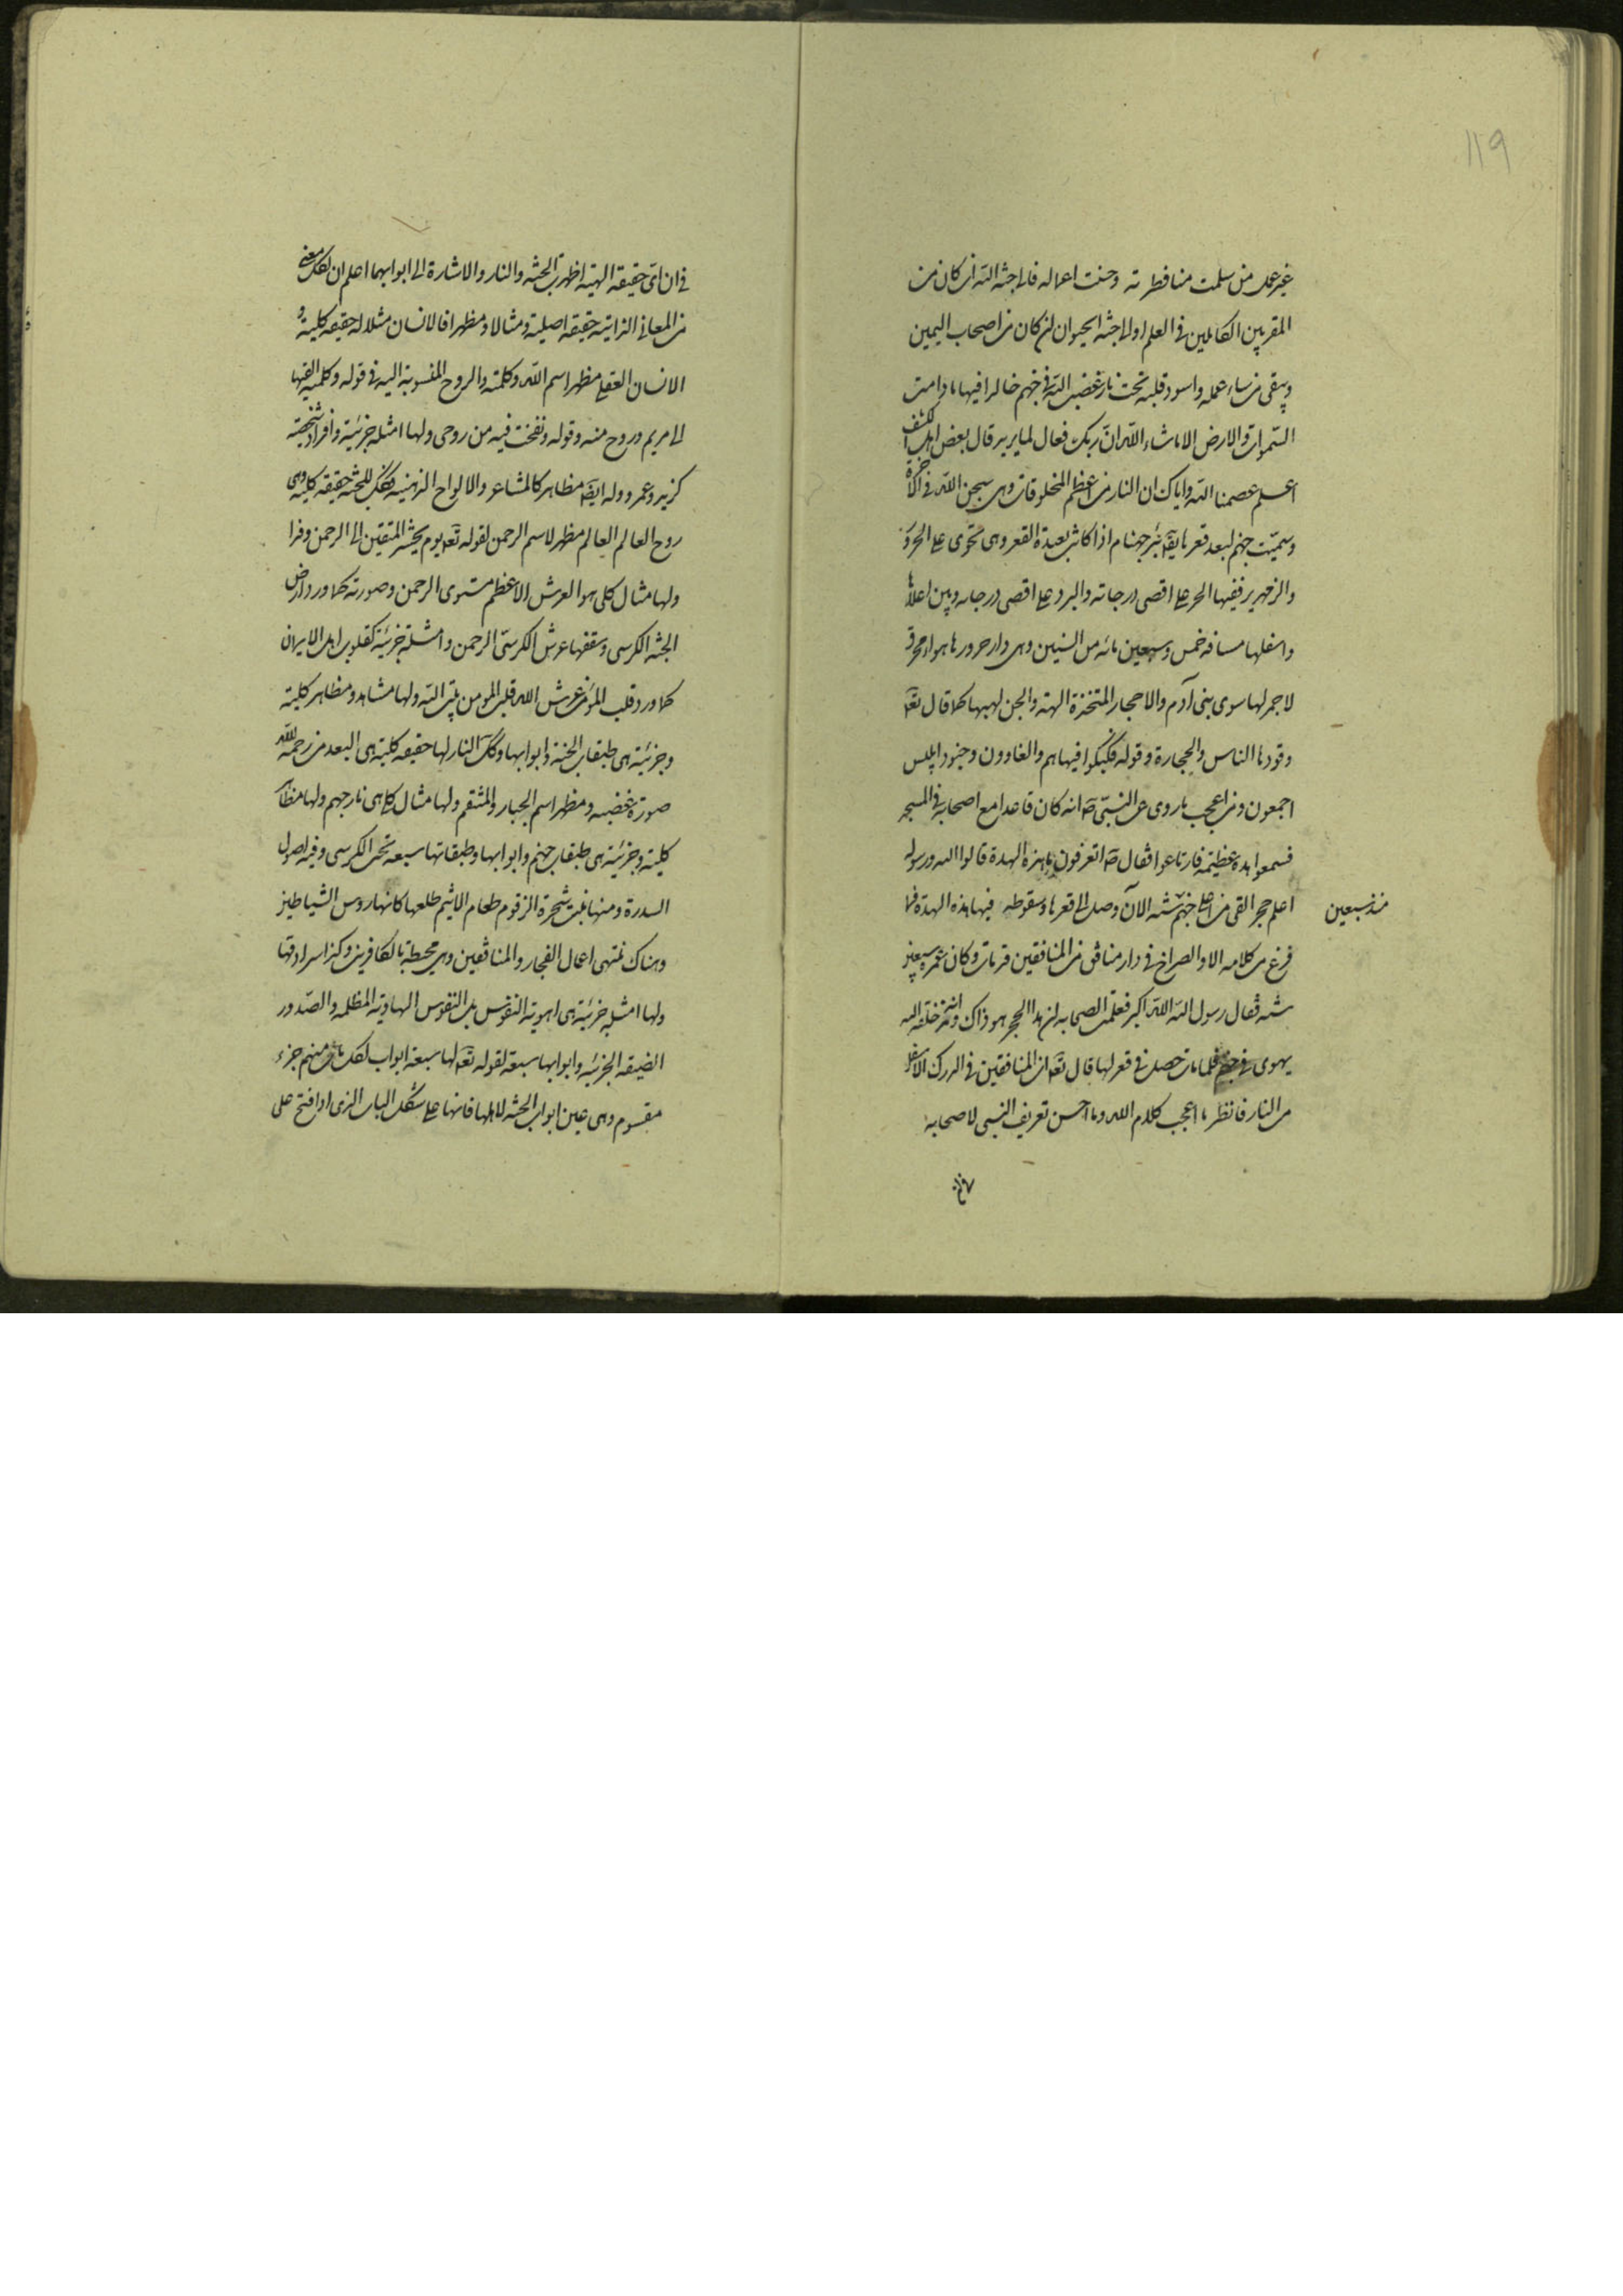 119
غير عمل من سلمت منا فطرته وحسنت اعماله فالى جنة الله ان كان من
المقربين الكاملين فى العلم او الى جنة الحيوان ان كان من اصحاب اليمين
ويبقى من ساء عمله واسود قلبه تحت نار غضب الله فى جهنم خالدا فيها ما دامت
السموات والارض الا ما شاء الله ان ربك فعال لما يريد قال بعض اهل الكشف
اعلم عصمنا الله واياك ان النار من اعظم المخلوقات وهى سجن الله فى الآخرة
وسميت جهنم لبعد قعرها يقال بئر جهنام اذا كانت بعيدة القعر وهى تحوى على الحرور
والزمهرير ففيها الحر على اقصى درجاته والبرد على اقصى درجاته وبين اعلاها
واسفلها مسافة خمس وسبعين مائة من السنين وهى دار حرورها هواء محرق
لا جمر لها سوى بنى آدم والاحجار المتخذة الهة والجن لهبها كما قال تعالى
وقودها الناس والحجارة وقوله فكبكبوا فيها هم والغاوون وجنود ابليس
اجمعون ومن اعجب ما روى عن النبى ص انه كان قاعدا مع اصحابه فى المسجد
فسمعوا هدة عظيمة فارتاعوا فقال ص اتعرفون ما هذه الهدة قالوا الله ورسوله
اعلم حجر القى من اعلى جهنم سنة الآن وصل الى قعرها وسقوطه فيها هذه الهدة فما
منذ سبعين
فرغ من كلامه الا والصراخ فى دار منافق من المنافقين قد مات وكان عمره سبعين
سنة فقال رسول الله الله اكبر فعلمت الصحابة ان هذا الحجر هو ذاك وانه منذ خلقه الله
يهوى فى جهنم فلما مات حصل فى قعرها قال تعالى ان المنافقين فى الدرك الاسفل
من النار فانظر ما اعجب كلام الله وما احسن تعريف النبى لاصحابه
فى ان اى حقيقة الهية اظهرت الجنة والنار والاشارة الى ابوابهما اعلم ان لكل معنى
من المعانى الذاتية حقيقة اصلية ومثالا ومظهرا فالانسان مثلا له حقيقة كلية و
الانسان العقلى مظهر اسم الله وكلمته والروح المنسوبة اليه فى قوله وكلمته القيها
الى مريم وروح منه وقوله ونفخت فيه من روحى ولها امثلة جزئية وافراد شخصية
كزيد وعمرو وله ايضا مظاهر كالمشاعر والالواح الذهنية فكذلك للجنة حقيقة كلية وهى
روح العالم العالم مظهر لاسم الرحمن لقوله تعالى يوم نحشر المتقين الى الرحمن وفدا
ولها مثال كلى هو العرش الاعظم مستوى الرحمن وصورته كما ورد ارض
الجنة الكرسى وسقفها عرش الكرسى الرحمن وامثلة جزئية كقلوب اهل الايمان
كما ورد قلب المؤمن عرش الله قلب المومن بيت الله ولها مشاهد ومظاهر كلية
وجزئية هى طبقات الجنة وابوابها وكذلك النار لها حقيقة كلية هى البعد من رحمة الله
صورة غضبه ومظهر اسم الجبار والمنتقم ولها مثال كلى هى نار جهنم ولها مظاهر
كلية وجزئية هى طبقات جهنم وابوابها وطبقاتها سبعة تحت الكرسى وفيه اصول
السدرة ومنها نبت شجرة الزقوم طعام الاثيم طلعها كانها روس الشياطين
وهناك تنتهى اعمال الفجار والمنافقين وهى محيطة بالكافرين وكذا سرادقها
ولها امثلة جزئية هى اهوية النفوس بل النفوس الهاوية المظلمة والصدور
الضيقة الجزئية وابوابها سبعة لقوله تعالى لها سبعة ابواب لكل باب منهم جزء
مقسوم وهى عين ابواب الجنة لاهلها فانها على شكل الباب الذى اذا فتح على